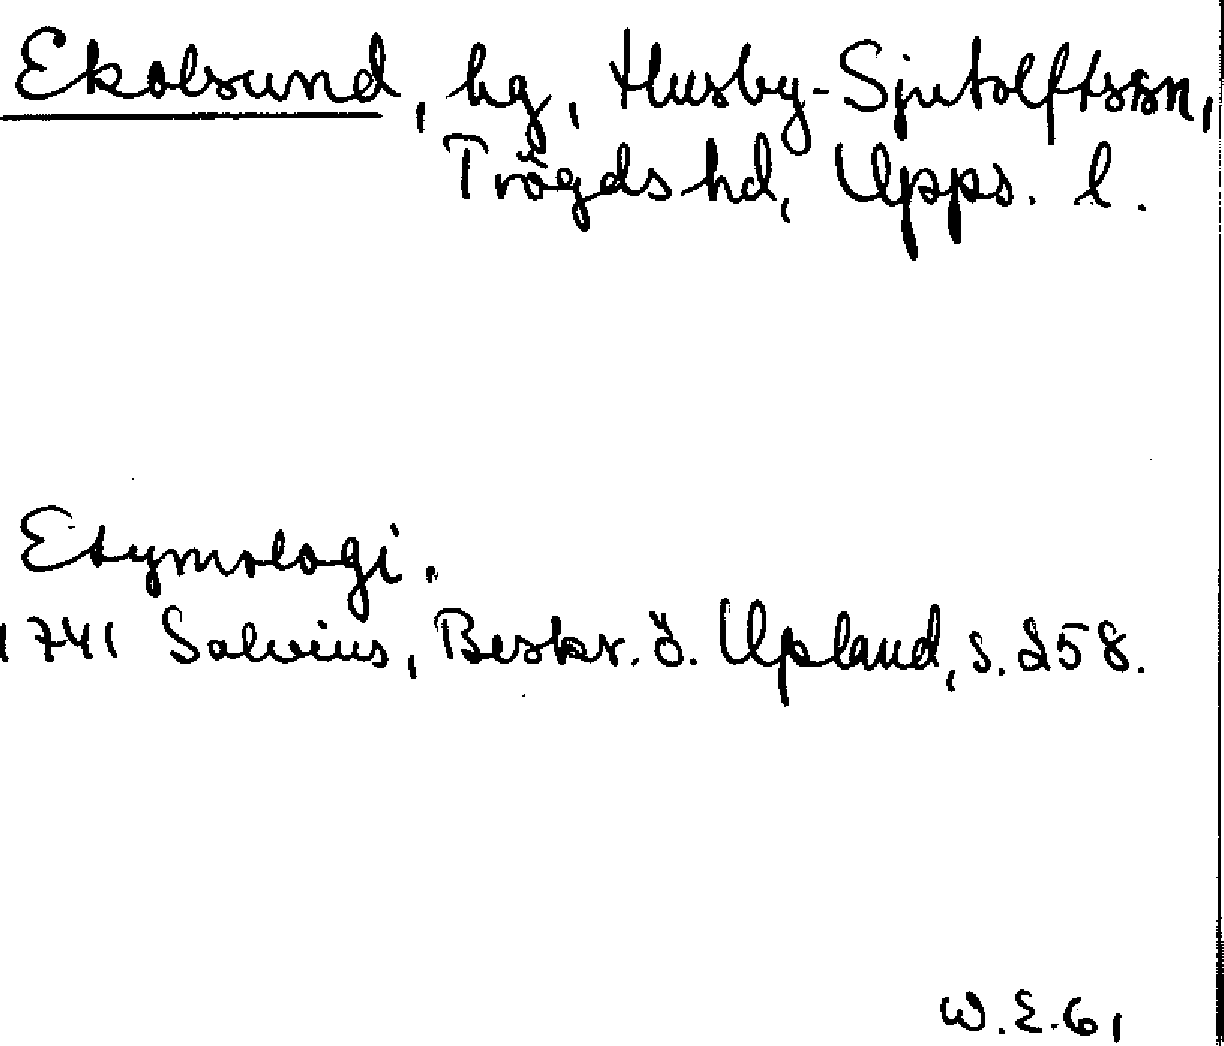 Ekolsund, hg, Husby-Sjutolfts sn,
Trögds hd, Upps. l.
Etymologi.
1741 Salvius, Beskr. ö. Upland, s. 258.
W.E.61